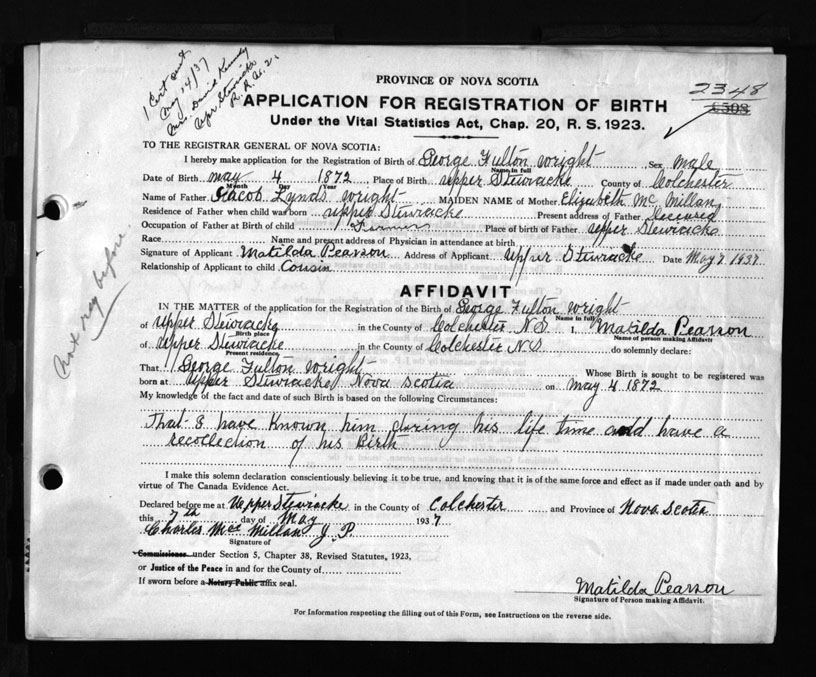 1 Cert sent
May 14/37
Mrs. David Kennedy
Upr. Stewiacke
R. R. No. 2.
PROVINCE OF NOVA SCOTIA
2348
APPLICATION FOR REGISTRATION OF BIRTH
Under the Vital Statistics Act, Chap. 20, R. S. 1923.
TO THE REGISTRAR GENERAL OF NOVA SCOTIA:
I hereby make application for the Registration of Birth of George Fulton Wright Sex Male
Name in full
Date of Birth May 4 1872 Place of Birth Upper Stewiacke County of Colchester
Month Day Year
Name of Father Jacob Lynds Wright MAIDEN NAME of Mother Elizabeth Mc Millan
Residence of Father when child was born Upper Stewiacke Present address of Father Deceased
Occupation of Father at Birth of child Farmer Place of birth of Father Upper Stewiacke
Race Name and present address of Physician in attendance at birth
Signature of Applicant Matilda Pearson Address of Applicant Upper Stewiacke Date May 7 1937
Relationship of Applicant to child Cousin
not reg before
AFFIDAVIT
IN THE MATTER of the application for the Registration of the Birth of George Fulton Wright
Name in full
of Upper Stewiacke in the County of Colchester N.S. I, Matilda Pearson
Birth place Name of person making Affidavit
of Upper Stewiacke in the County of Colchester N S do solemnly declare:
Present residence.
That George Fulton Wright Whose Birth is sought to be registered was
born at Upper Stewiacke Nova Scotia on May 4 1872
My knowledge of the fact and date of such Birth is based on the following Circumstances:
That I have Known him during his life time and have a
recollection of his Birth
I make this solemn declaration conscientiously believing it to be true, and knowing that it is of the same force and effect as if made under oath and by
virtue of The Canada Evidence Act.
Declared before me at Upper Stewiacke in the County of Colchester and Province of Nova Scotia
this 7th day of May 1937
Charles Mac Millan J. P.
Signature of
Commissioner under Section 5, Chapter 38, Revised Statutes, 1923,
or Justice of the Peace in and for the County of
If sworn before a Notary Public affix seal.
Matilda Pearson
Signature of Person making Affidavit.
For Information respecting the filling out of this Form, see Instructions on the reverse side.